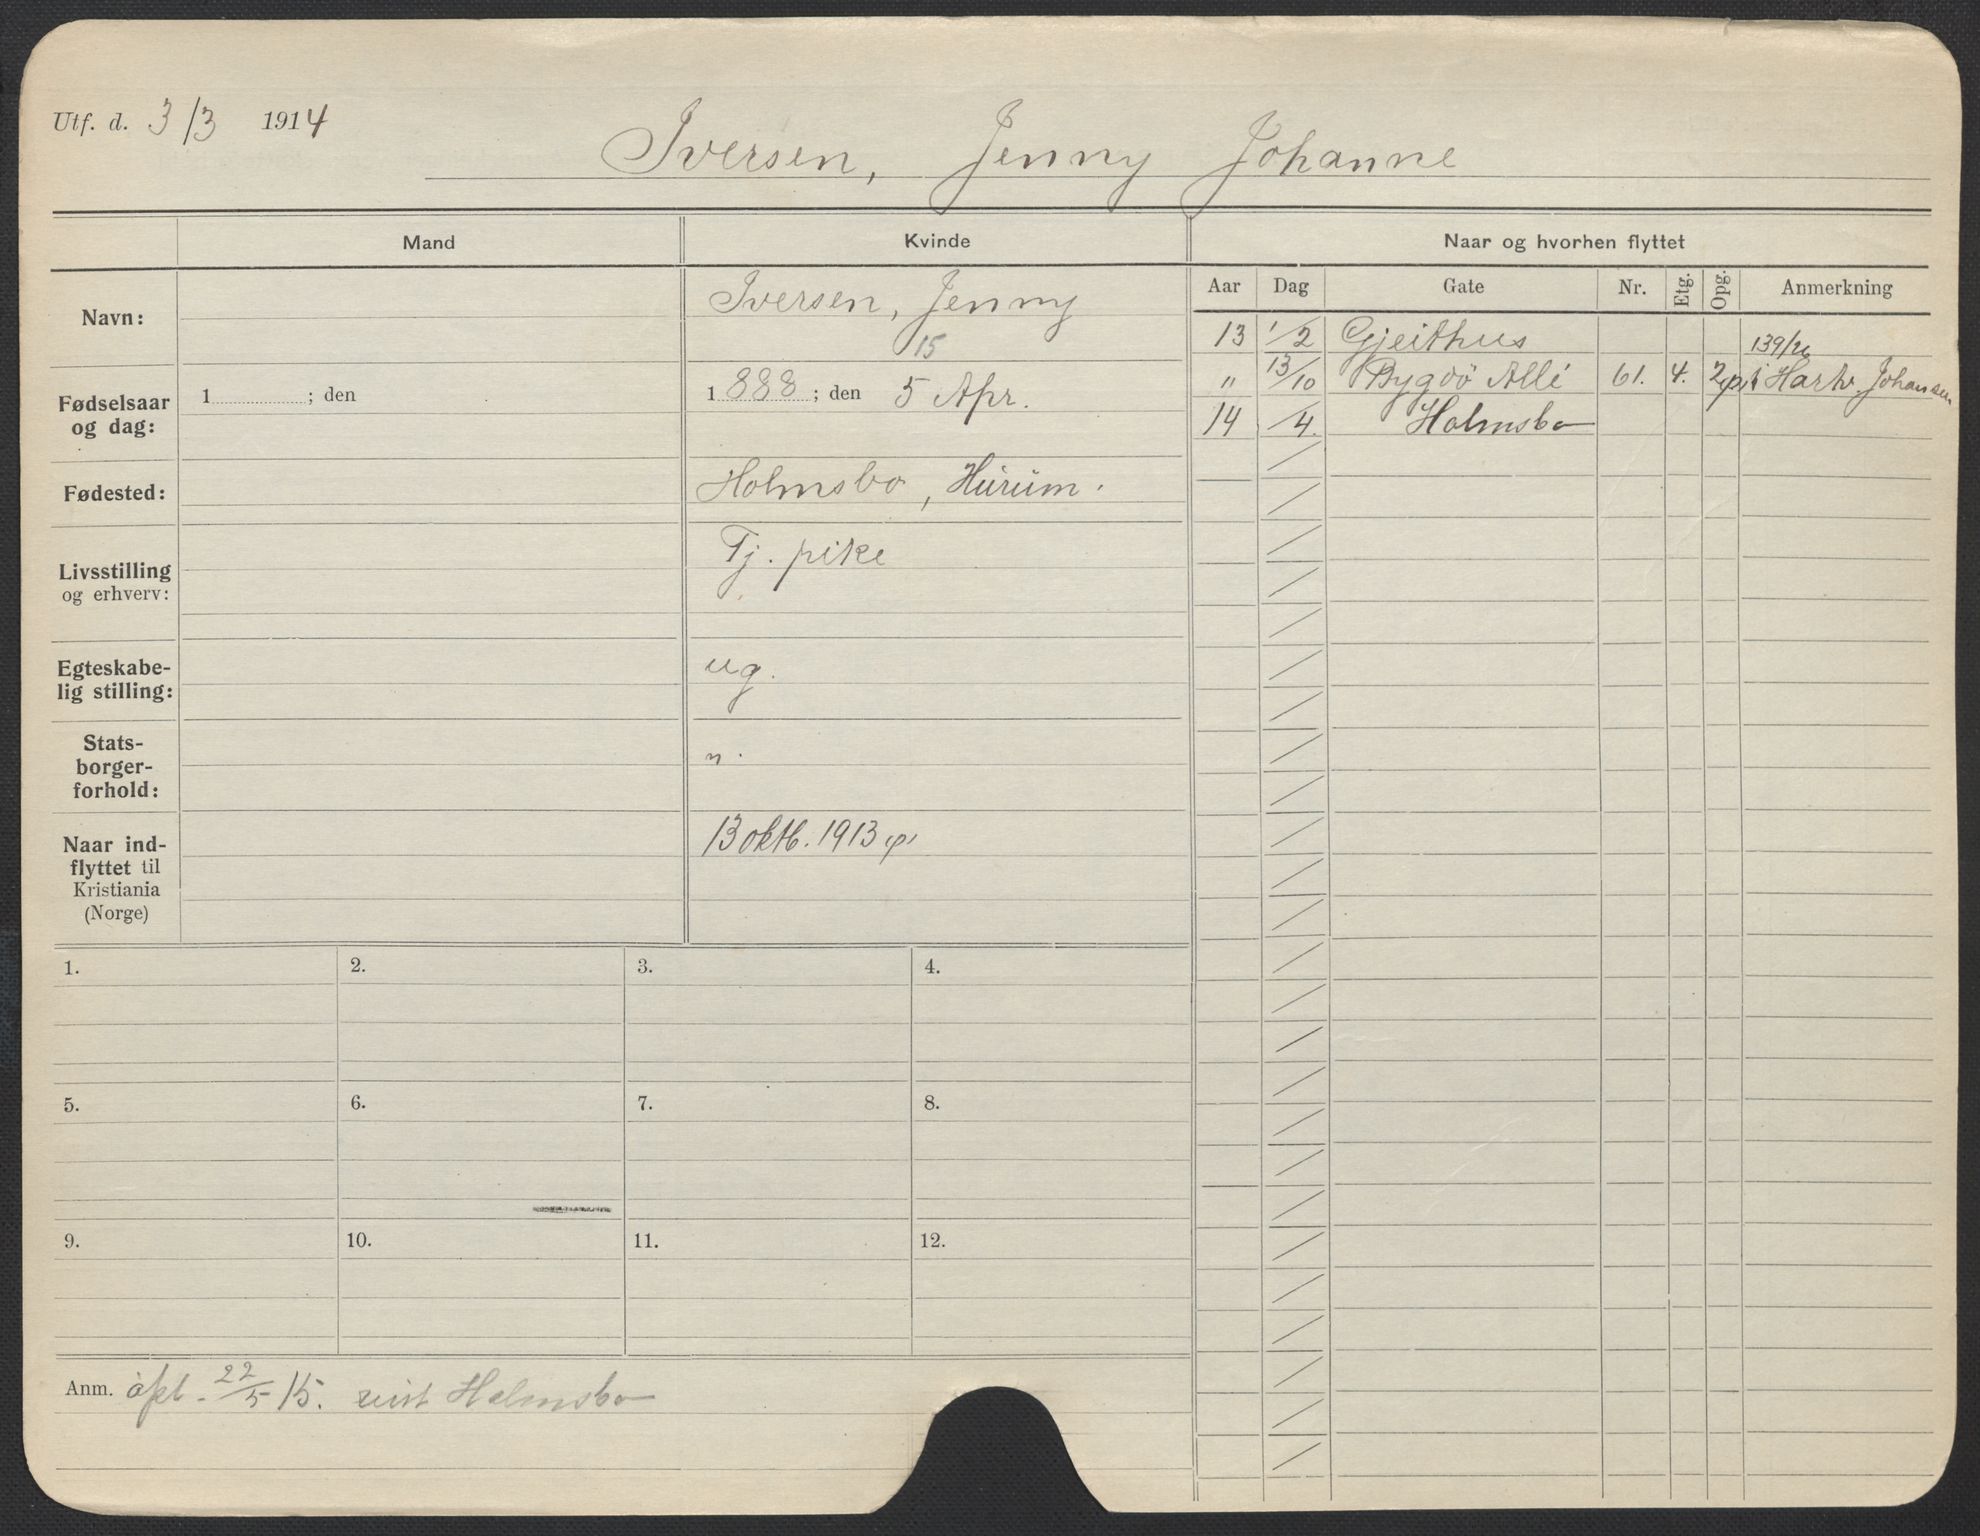 Utf. d. 3/3 1914
Iversen, Jenny Johanne
Mand Kvinde Naar og hvorhen flyttet
Aar Dag Gate Nr. Etg. Opg. Anmerkning
Navn: Iversen, Jenny
15
Fødselsaar og dag: 1 ; den 1 888 ; den 5 Apr.
Fødested: Holmsbo, Hurum.
Livsstilling og erhverv: Tj. pike
Egteskabelig stilling: ug.
Statsborgerforhold: n.
Naar indflyttet til Kristiania (Norge) 13 oktb. 1913
13 1/2 Gjeithus
139/26
" 13/10 Bygdö Allé 61. 4. Hartv. Johansen
14 /4. Holmsbo
1. 2. 3. 4.
5. 6. 7. 8.
9. 10. 11. 12.
Anm. 22/5 15. Holmsbo